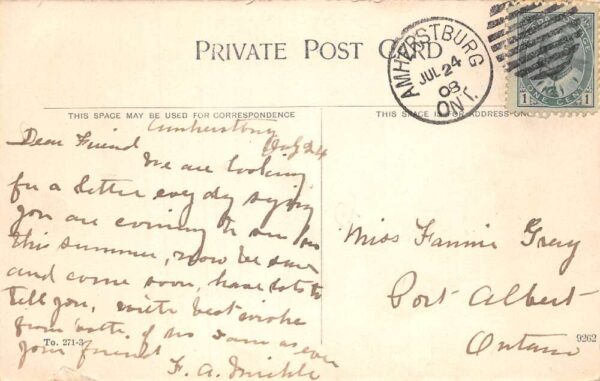 PRIVATE POST CARD
AMHERSTBURG
JUL 24
08
ONT.
1 ONE CENT 1
THIS SPACE MAY BE USED FOR CORRESPONDENCE
THIS SPACE IS FOR ADDRESS ON
Amherstburg
July 24
Dear Friend
We are looking
for a letter every day saying
you are coming to see us
this summer, now be sure
and come soon, have lots to
tell you, with best wishes
from both of us I am as ever
your friend
F. A.
Miss Fannie Gray
Port Albert
Ontario
To. 271-3
9262